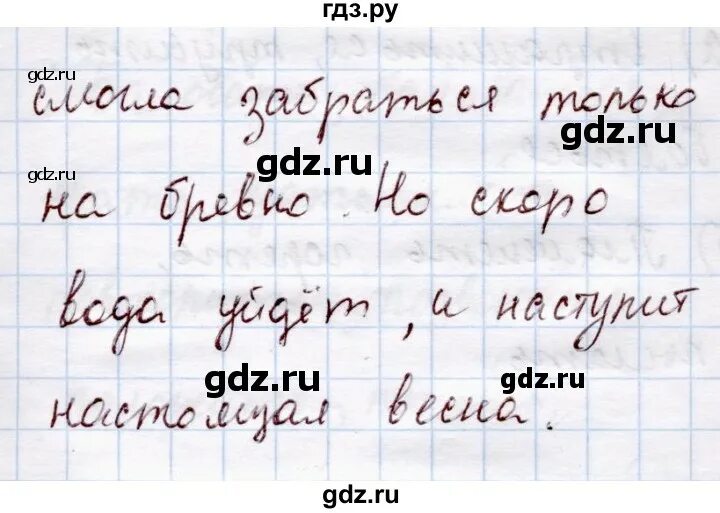 гдз.ру
gdz.ru
смогла забраться только
gdz.ru
gdz.ru
gdz.ru
на бревно. Но скоро
вода уйдёт, и наступит
gdz.ru
gdz.ru
настоящая весна.
gdz.ru